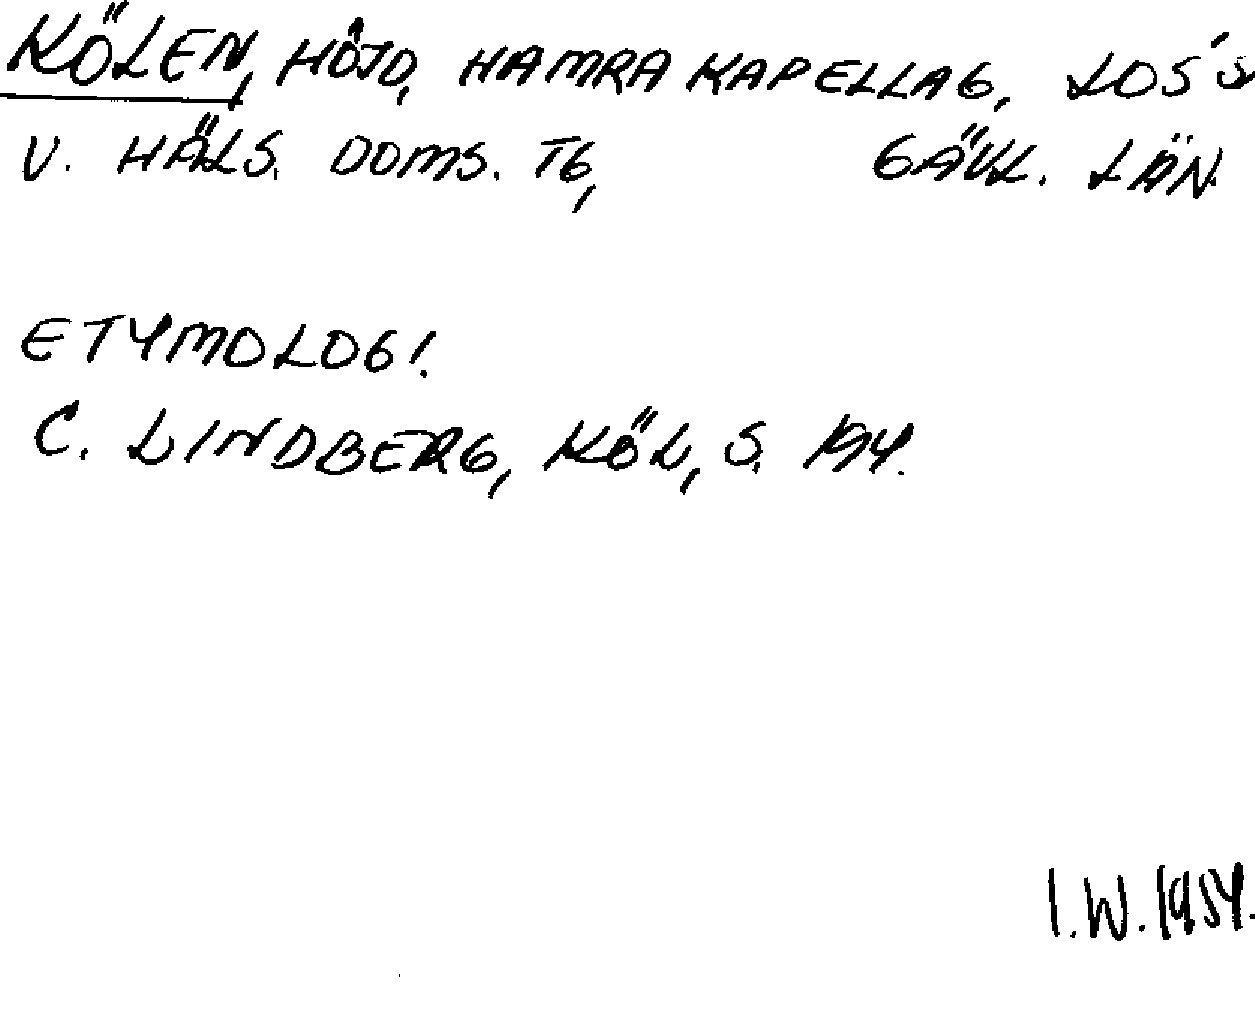 KÖLEN, HÖJD, HAMRA KAPELLAG, LOS'S
V. HÄLS. DOMS. TG, GÄVL. LÄN.
ETYMOLOGI.
C. LINDBERG, KÖL, S.
I.W. 1954.